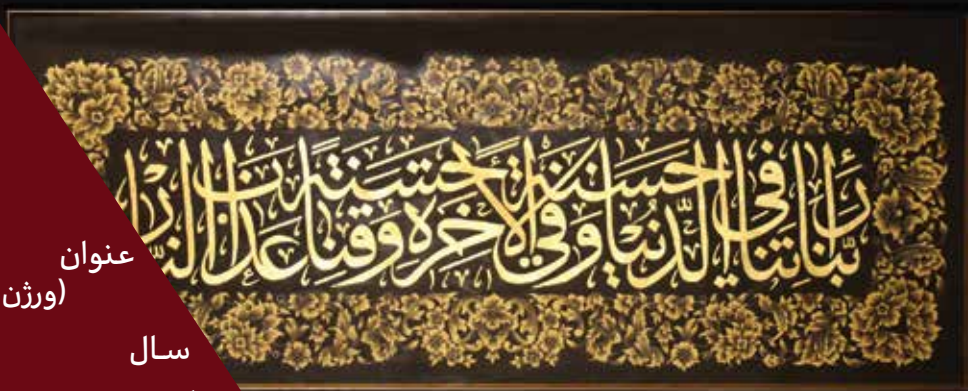 ربنا آتنا في الدنيا حسنة وفي الآخرة حسنة وقنا عذاب النار
عنوان
(ورژن
سال